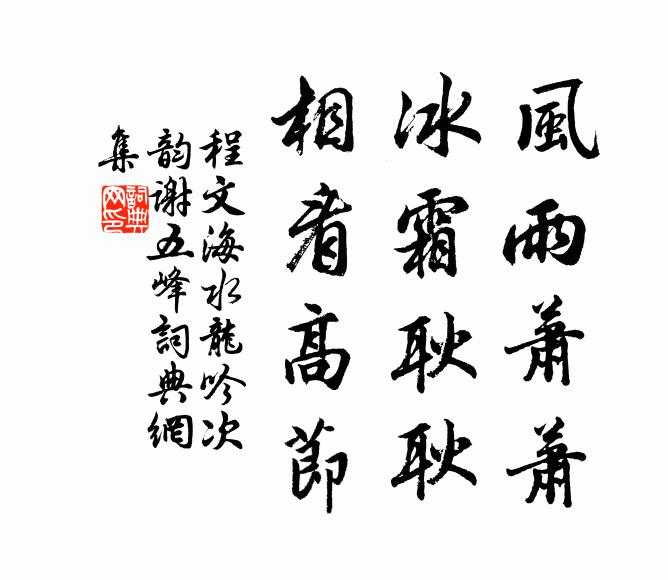 風雨蕭蕭
冰霜耿耿
相看高節
程文海水龍吟次
韵謝五峰詞典網
集
詞典網印